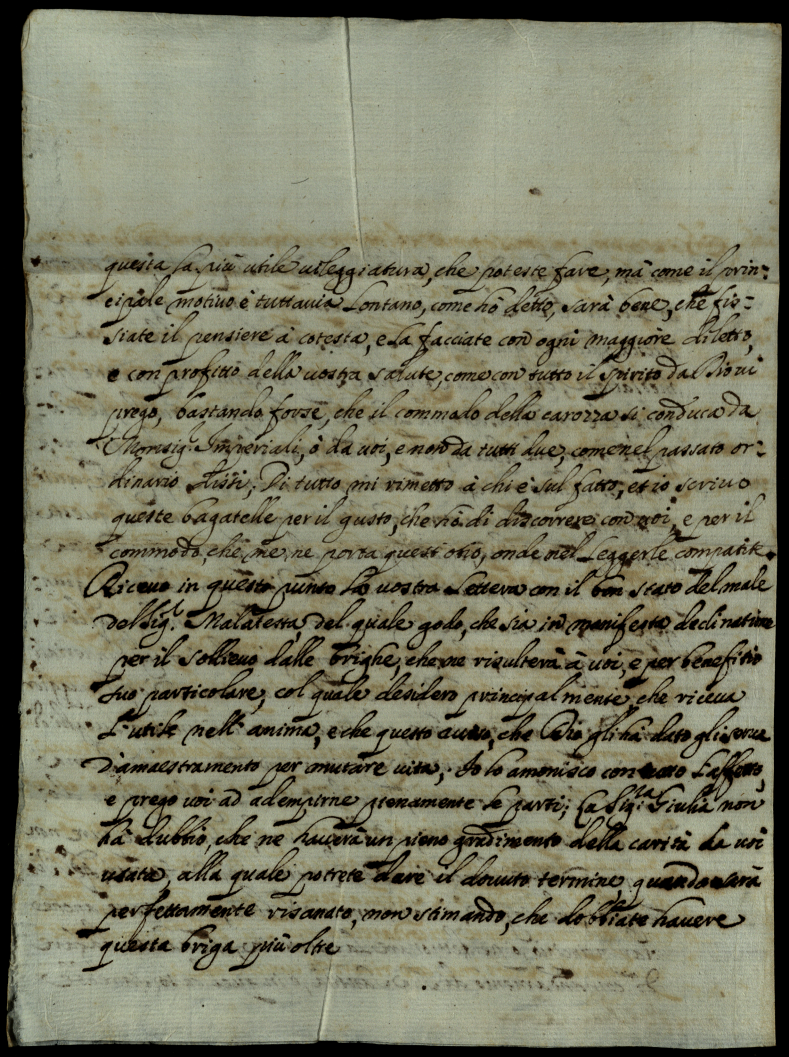 questa la più utile uilleggiatura, che poteste fare, mà come il prin=
cipale motiuo è tuttauia lontano, come hò detto, sarà bene, che fis=
siate il pensiere à cotesta, e la facciate con ogni maggiore diletto,
e con profitto della uostra salute, come con tutto il spirito da Dio ui
prego, bastando forse, che il commodo della carozza si conduca da
Monsig.r Imperiali, ò da uoi, e non da tutti due, come nel passato or=
dinario dissi; Di tutto mi rimetto à chi è sul fatto, et io scriuo
queste bagatelle per il gusto, che hò di discorrere con uoi, e per il
commodo, che me ne porta quest'otio, onde nel leggerle compatite.
Riceuo in questo punto la uostra lettera con il bon stato del male
del Sig.r Malatesta, del quale godo, che sia in manifesta declinatione
per il sollieuo dalle brighe, che ne risulterà à uoi, e per benefitio
suo particolare, col quale desidero principalmente, che riceua
l'utile nell'anima, e che questo auiso, che Dio gli hà dato gli serua
d'amaestramento per mutare uita; Io lo amonisco con tutto l'affetto,
e prego uoi ad adempirne pienamente le parti; La Sig.ra Giulia non
hà dubbio, che ne hauerà un pieno gradimento della carità da uoi
usata, alla quale potrete dare il douuto termine, quando sarà
perfettamente risanato, non stimando, che dobbiate hauere
questa briga più oltre